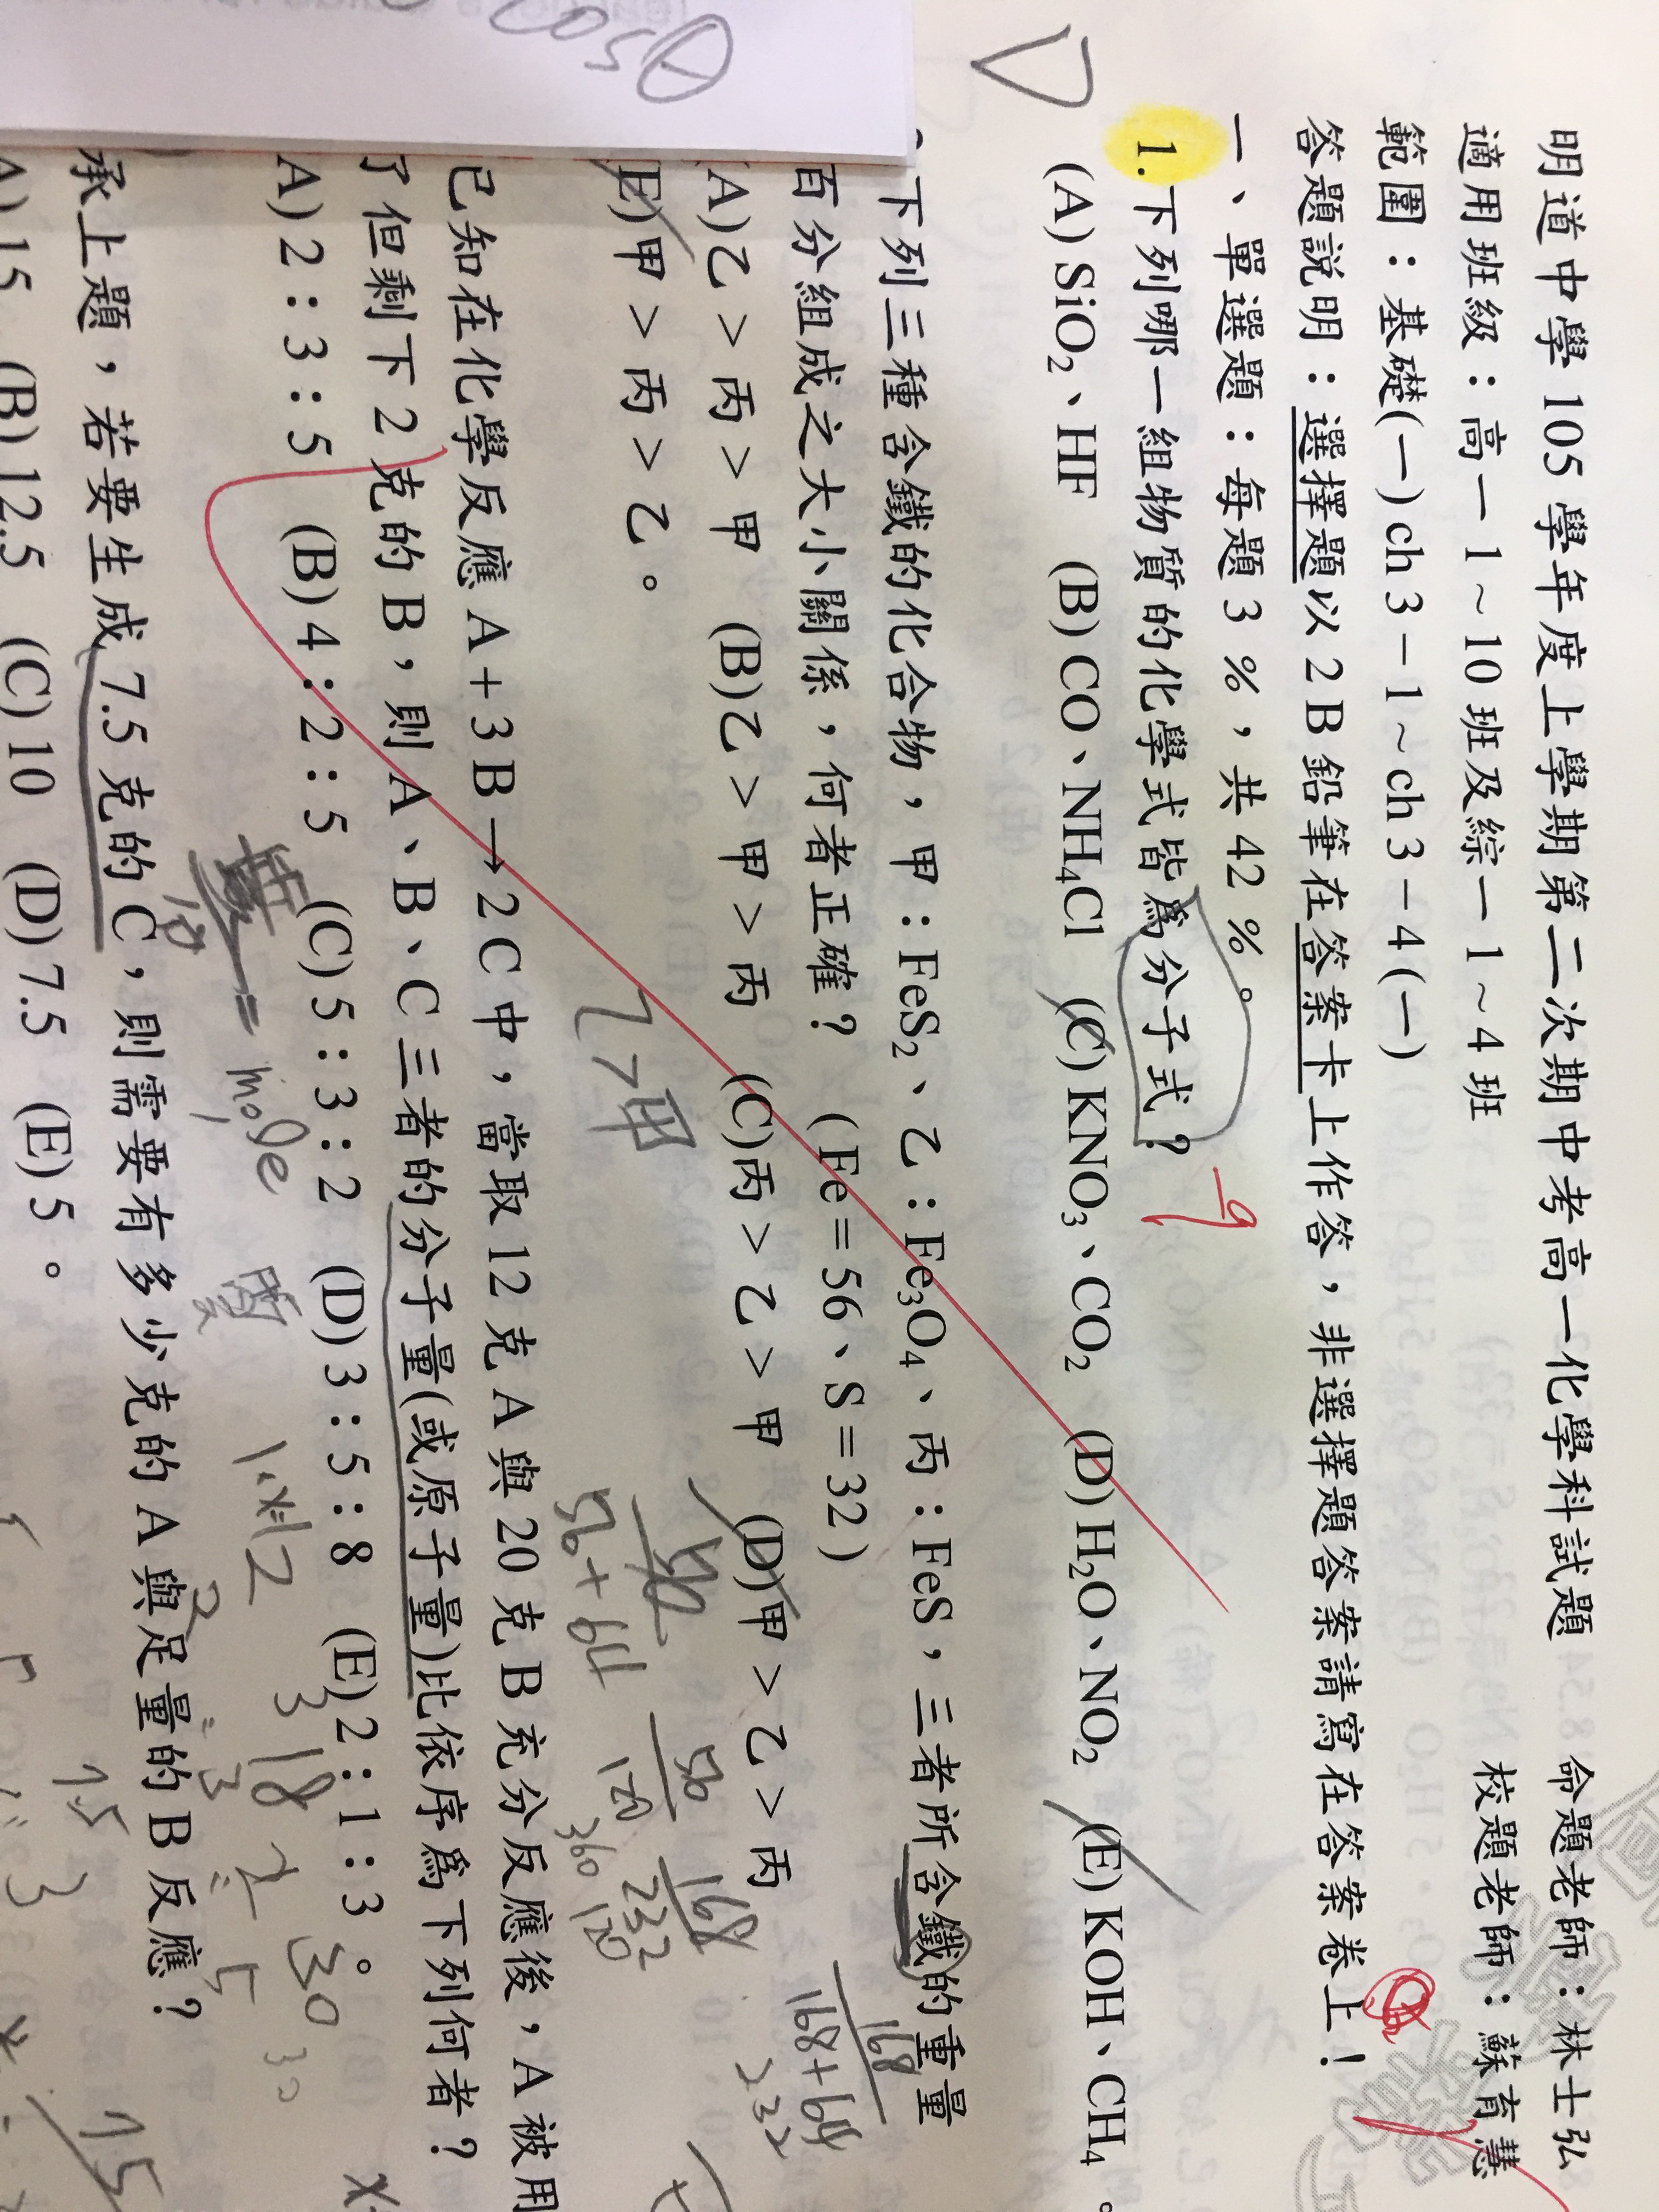 明道中學 105 學年度上學期第二次期中考高一化學科試題 命題老師：林士弘
適用班級：高一 1 ~ 10 班及綜一 1 ~ 4 班 校題老師：蘇育慧
範圍：基礎(一) ch 3 – 1 ~ ch 3 – 4 (一)
答題說明：選擇題以 2 B 鉛筆在答案卡上作答，非選擇題答案請寫在答案卷上！
一、單選題：每題 3 %，共 42 %。
1. 下列哪一組物質的化學式皆為分子式？
(A) SiO₂、HF (B) CO、NH₄Cl (C) KNO₃、CO₂ (D) H₂O、NO₂ (E) KOH、CH₄。
下列三種含鐵的化合物，甲：FeS₂、乙：Fe₃O₄、丙：FeS，三者所含鐵的重量
百分組成之大小關係，何者正確？ (Fe = 56、S = 32)
(A)乙 > 丙 > 甲 (B)乙 > 甲 > 丙 (C)丙 > 乙 > 甲 (D)甲 > 乙 > 丙
(E)甲 > 丙 > 乙。
乙>甲
56
56+64
56
120
168
232
168
168+64
232
360
120
已知在化學反應 A + 3 B → 2 C 中，當取 12 克 A 與 20 克 B 充分反應後，A 被用
了但剩下 2 克的 B，則 A、B、C 三者的分子量(或原子量)比依序為下列何者？
A) 2 : 3 : 5 (B) 4 : 2 : 5 (C) 5 : 3 : 2 (D) 3 : 5 : 8 (E) 2 : 1 : 3。
= mole
3 18
30
承上題，若要生成 7.5 克的 C，則需要有多少克的 A 與足量的 B 反應？
A) 15 (B) 12.5 (C) 10 (D) 7.5 (E) 5。
7.5